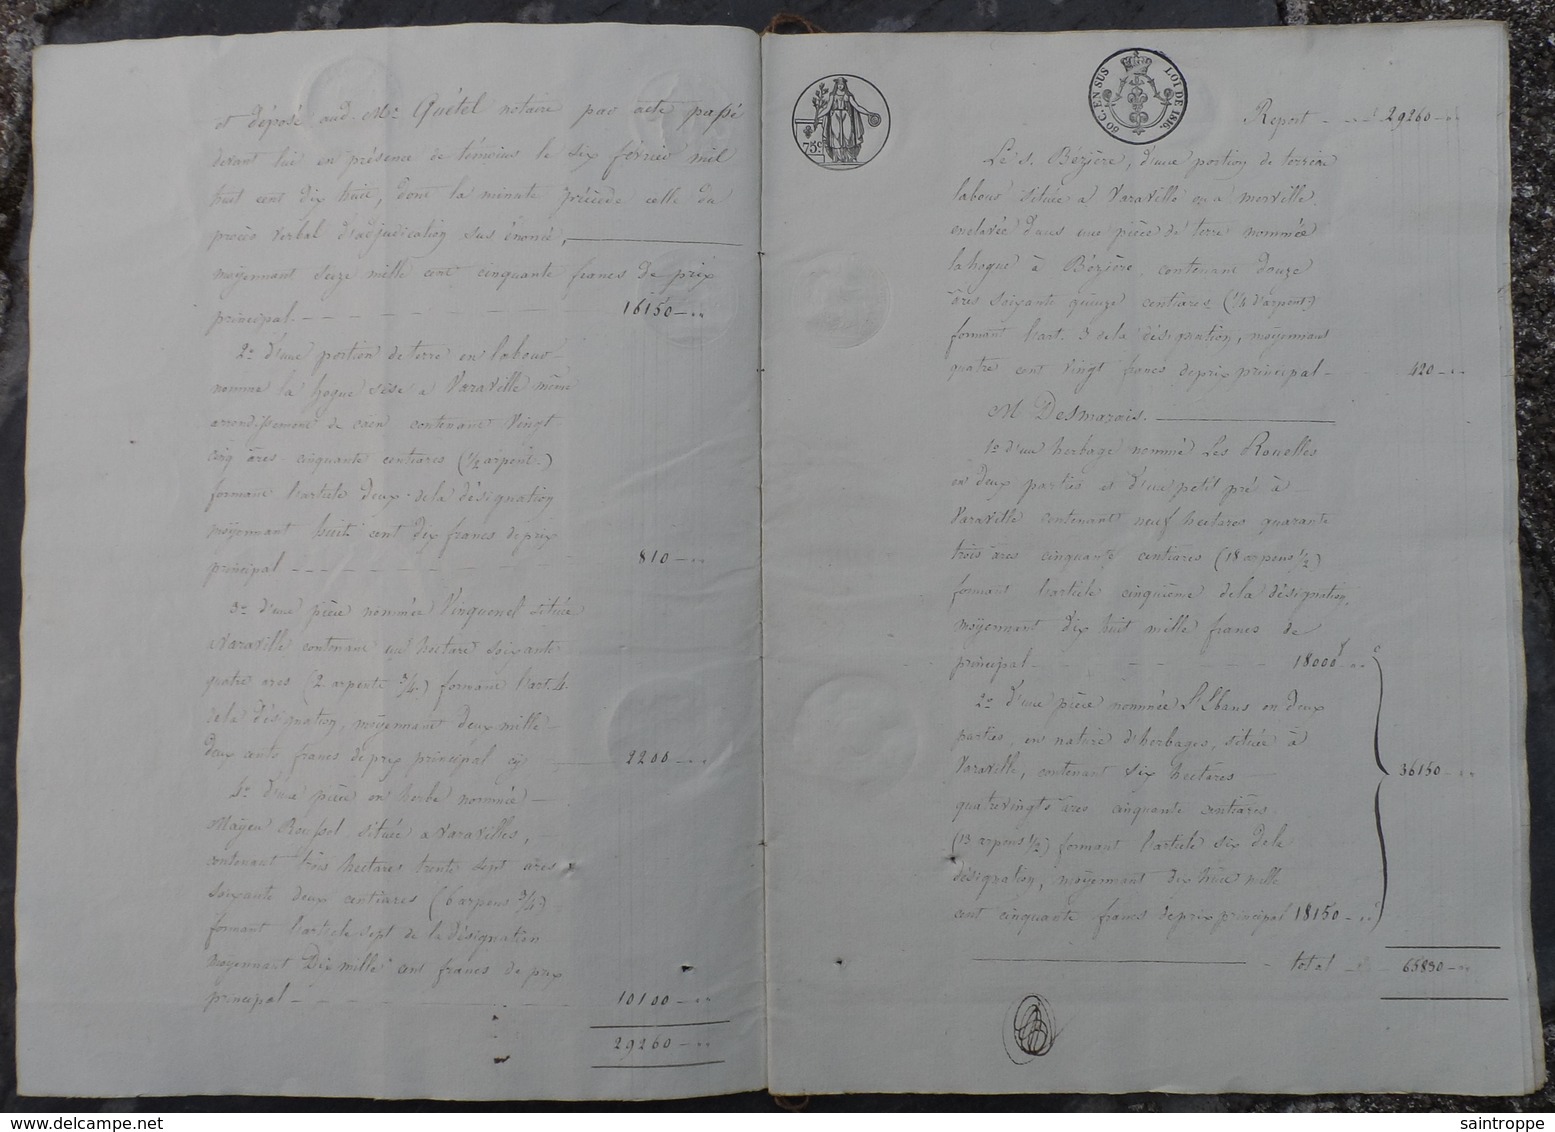 et déposé aud. Me. Quétel notaire par acte passé
devant lui en présence de témoins le six février mil
huit cent dix huit, dont la minute précède celle du
procès verbal d'adjudication sus énoncé,
moÿennant seize mille cent cinquante francs de prix
principal. 16150 - ,,
2o. d'une portion de terre en labour
nommé la hogue sise a Varaville même
arrondissement de caen contenant vingt
cinq âres cinquante centiares (1/2 arpent.)
formant l'article deux de la désignation
moÿennant huit cent dix francs de prix
principal 810 - ,,
3o. d'une pièce nommée Vinquenel située
a Varaville contenant un hectare soixante
quatre ares (2 arpents 3/4.) formant l'art. 4.
de la désignation, moÿennant deux mille
deux cents francs de prix principal cÿ 2200 - ,,
4o. d'une pièce en herbe nommée
Roussel située a Varavilles,
contenant trois hectares trente sept ares
soixante deux centiares (6 arpens 3/4)
formant l'article sept de la désignation
moÿennant Dix mille cent francs de prix
principal 10100 - ,,
29260 - ,,
75c
80 C. EN SUS LOI DE 1816.
Report 29260 - ,,
Le s. Bézière, d'une portion de terre en
labour située a Varaville ou a merville
enclavée dans une pièce de terre nommée
la hogue à Bézière, contenant douze
âres soixante quinze centiares (1/4 d'arpent.)
formant l'art. 3 de la désignation, moÿennant
quatre cent vingt francs de prix principal 420 - ,,
M Desmarais.
1o. d'un herbage nommé Les Rouelles
en deux parties et d'une petit pré à
Varaville contenant neuf hectares quarante
trois âres cinquante centiares (18 arpens 1/2)
formant l'article cinquième de la désignation,
moÿennant dix huit mille francs de
principal 18000f ,, c
2o. d'une pièce nommée en deux
parties, en nature d'herbages, située à
Varaville, contenant six hectares
quatrevingts âres cinquante centiares
36150 - ,,
(13 arpens 1/2) formant l'article six de la
désignation, moÿennant dix huit mille
cent cinquante francs de prix principal 18150 - ,,
total 65830 - ,,
saintroppe